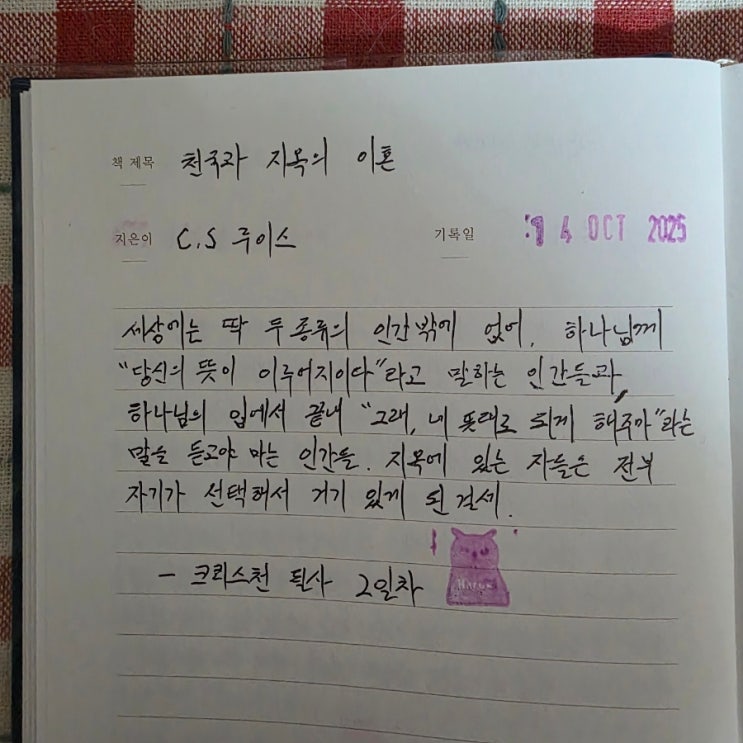 책 제목 천국과 지옥의 이혼
지은이 C.S 루이스 기록일 14 OCT 2025
세상에는 딱 두 종류의 인간밖에 없어. 하나님께
"당신의 뜻이 이루어지이다"라고 말하는 인간들과,
하나님의 입에서 끝내 "그래, 네 뜻대로 되게 해주마"라는
말을 듣고야 마는 인간들. 지옥에 있는 자들은 전부
자기가 선택해서 거기 있게 된 걸세.
- 크리스천 필사 2일차